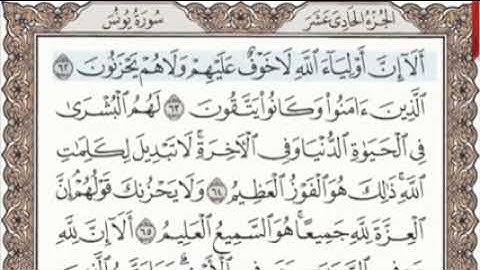 الجُزْءُ الحَادِى عَشَرَ
سُورَةُ يُونُسَ
أَلَآ إِنَّ أَوْلِيَآءَ ٱللَّهِ لَا خَوْفٌ عَلَيْهِمْ وَلَا هُمْ يَحْزَنُونَ ٦٢
ٱلَّذِينَ ءَامَنُوا۟ وَكَانُوا۟ يَتَّقُونَ ٦٣ لَهُمُ ٱلْبُشْرَىٰ
فِى ٱلْحَيَوٰةِ ٱلدُّنْيَا وَفِى ٱلْءَاخِرَةِ ۚ لَا تَبْدِيلَ لِكَلِمَٰتِ
ٱللَّهِ ۚ ذَٰلِكَ هُوَ ٱلْفَوْزُ ٱلْعَظِيمُ ٦٤ وَلَا يَحْزُنكَ قَوْلُهُمْ ۘ إِنَّ
ٱلْعِزَّةَ لِلَّهِ جَمِيعًا ۚ هُوَ ٱلسَّمِيعُ ٱلْعَلِيمُ ٦٥ أَلَآ إِنَّ لِلَّهِ